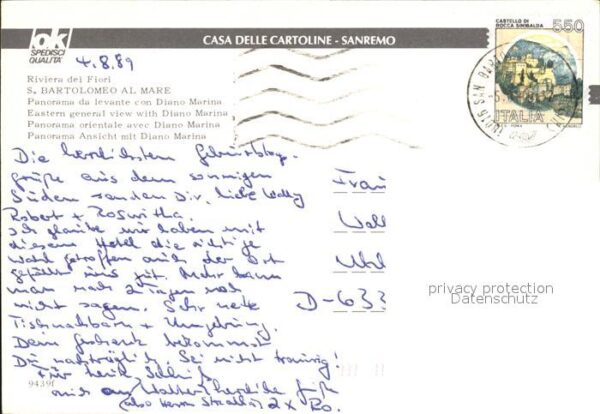 ok
SPEDISCI
QUALITA'
CASA DELLE CARTOLINE - SANREMO
CASTELLO DI
ROCCA SINIBALDA
550
ITALIA
18016 SAN BARTO
4.8.89
Riviera dei Fiori
S. BARTOLOMEO AL MARE
Panorama da levante con Diano Marina
Eastern general view with Diano Marina
Panorama orientale avec Diano Marina
Panorama Ansicht mit Diano Marina
Die herzlichsten Geburtstags-
grüße aus dem sonnigen
Süden senden Dir, liebe Wally
Robert + Roswitha.
Ich glaube wir haben mit
diesem Hotel die richtige
Wahl getroffen auch der Ort
gefällt uns gut. Mehr kann
man nach 2 Tagen noch
nicht sagen. Sehr nette
Tischnachbarn + Umgebung.
Dein Geschenk bekommst
Du nachträglich. Sei nicht traurig!
Für heute
auch an Walter herzliche Grüße
(also Herrn) 2 x Ro.
Frau
Wall
D-633
privacy protection
Datenschutz
9439f